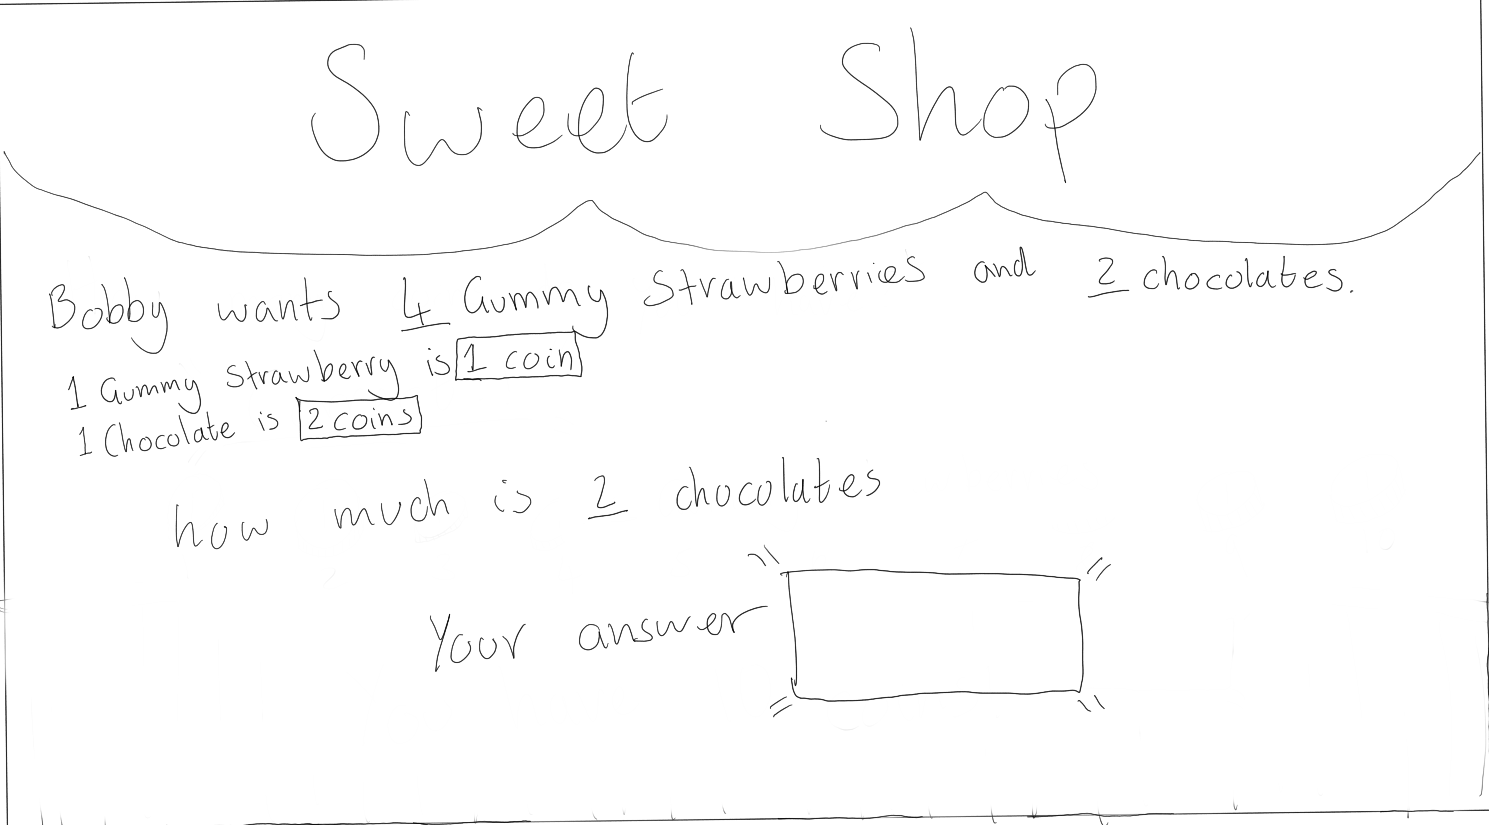 Sweet Shop
Bobby wants 4 Gummy Strawberries and 2 chocolates.
1 Gummy Strawberry is 1 coin
1 Chocolate is 2 coins
how much is 2 chocolates
Your answer